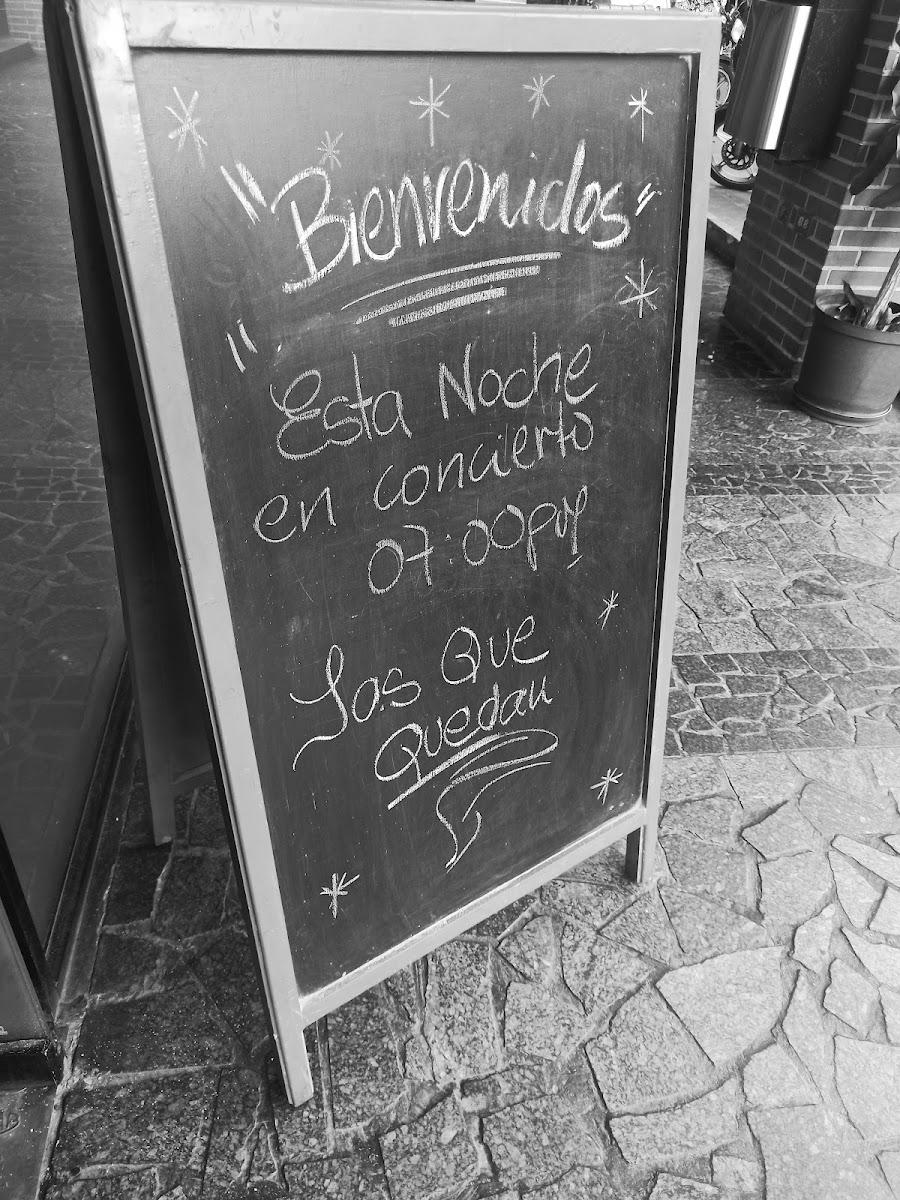 "Bienvenidos"
" Esta Noche
en concierto
07:00pm
Los Que
Quedan